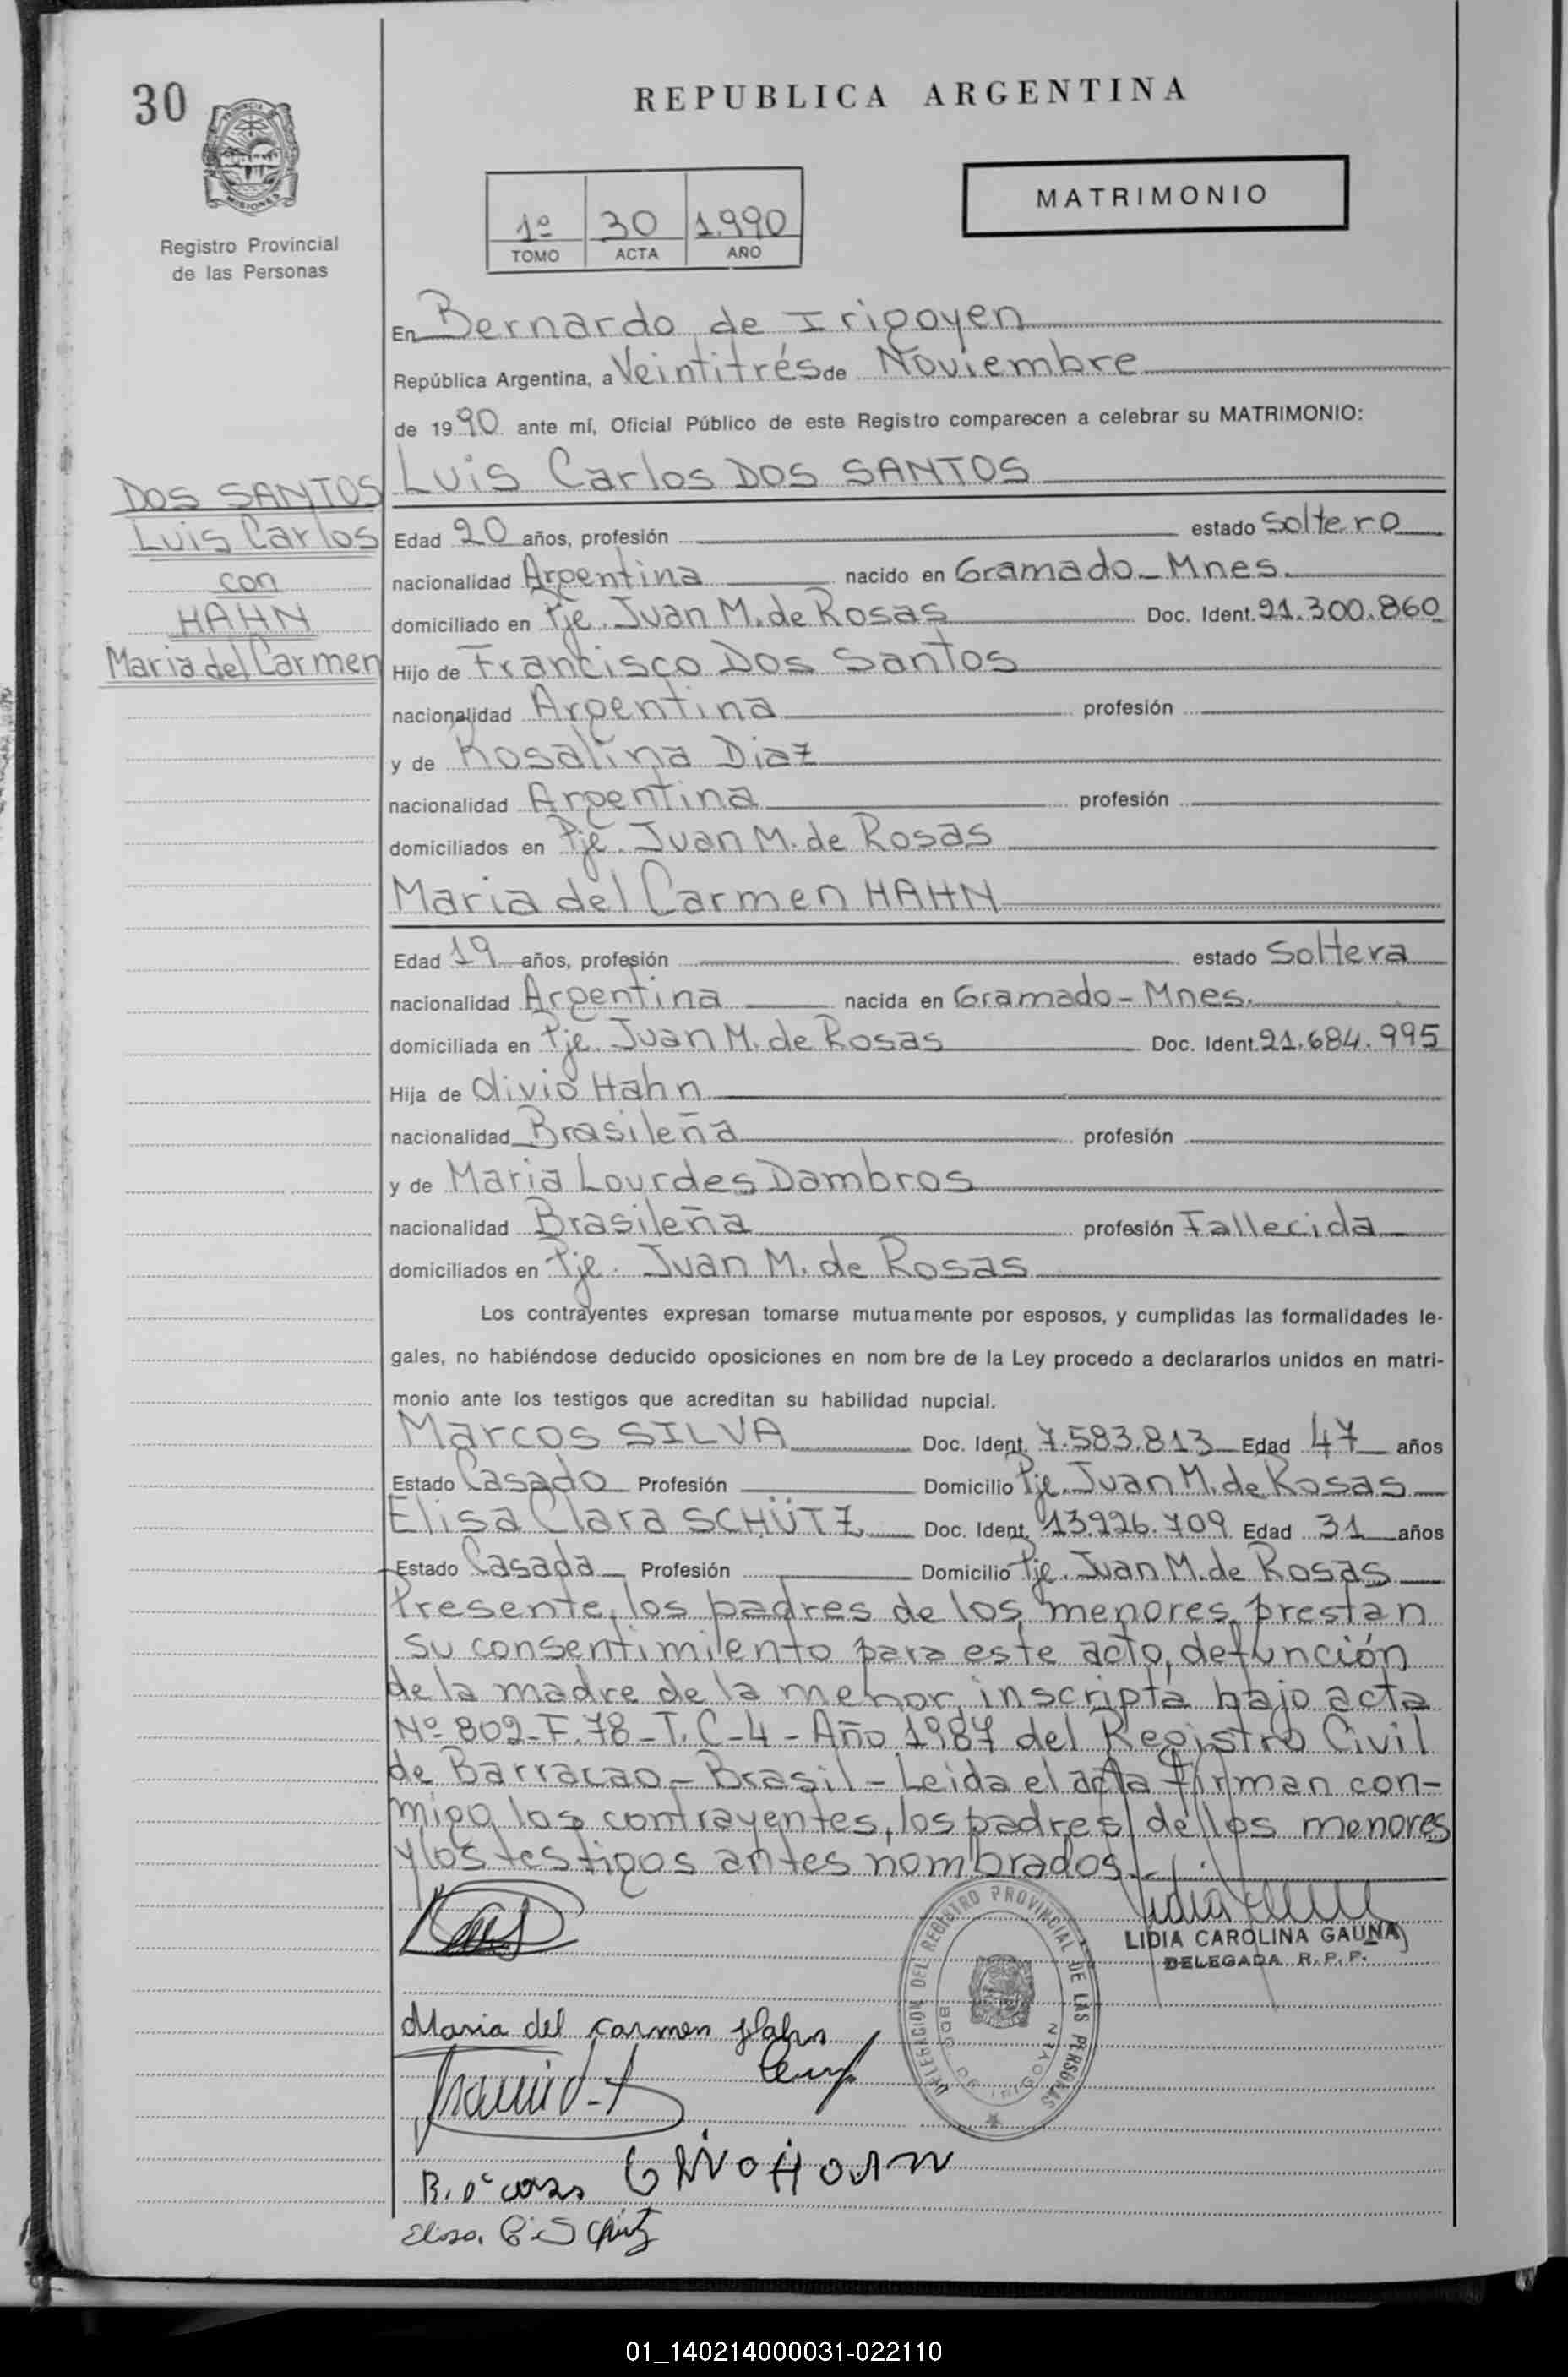 30
PROVINCIA DE MISIONES
Registro Provincial
de las Personas
REPUBLICA ARGENTINA
1º 30 1.990
TOMO ACTA AÑO
MATRIMONIO
En Bernardo de Irigoyen
República Argentina, a Veintitrés de Noviembre
de 1990 ante mí, Oficial Público de este Registro comparecen a celebrar su MATRIMONIO:
DOS SANTOS
Luis Carlos
con
HAHN
Maria del Carmen
Luis Carlos DOS SANTOS
Edad 20 años, profesión estado Soltero
nacionalidad Argentina nacido en Gramado - Mnes.
domiciliado en Pje. Juan M. de Rosas Doc. Ident. 21.300.860
Hijo de Francisco Dos Santos
nacionalidad Argentina profesión
y de Rosalina Diaz
nacionalidad Argentina profesión
domiciliados en Pje. Juan M. de Rosas
Maria del Carmen HAHN
Edad 19 años, profesión estado Soltera
nacionalidad Argentina nacida en Gramado - Mnes.
domiciliada en Pje. Juan M. de Rosas Doc. Ident. 21.684.995
Hija de Olivio Hahn
nacionalidad Brasileña profesión
y de Maria Lourdes Dambros
nacionalidad Brasileña profesión Fallecida
domiciliados en Pje. Juan M. de Rosas
Los contrayentes expresan tomarse mutuamente por esposos, y cumplidas las formalidades le-
gales, no habiéndose deducido oposiciones en nom bre de la Ley procedo a declararlos unidos en matri-
monio ante los testigos que acreditan su habilidad nupcial.
Marcos SILVA Doc. Ident. 7.583.813 Edad 47 años
Estado Casado Profesión Domicilio Pje. Juan M. de Rosas
Elisa Clara SCHÜTZ Doc. Ident. 13.926.709 Edad 31 años
Estado Casada Profesión Domicilio Pje. Juan M. de Rosas
Presente, los padres de los menores, prestan
su consentimiento para este acto, defunción
de la madre de la menor, inscripta bajo acta
Nº 802 - F. 78 - T. C-4 - Año 1987 del Registro Civil
de Barracao - Brasil - Leida el acta firman con-
migo los contrayentes, los padres de los menores
y los testigos antes nombrados.
LIDIA CAROLINA GAUNA
DELEGADA R.P.P.
DELEGACION DEL REGISTRO PROVINCIAL DE LAS PERSONAS
BDO. DE IRIGOYEN
Maria del Carmen Hahn
Elisa C. Schütz
01_140214000031-022110